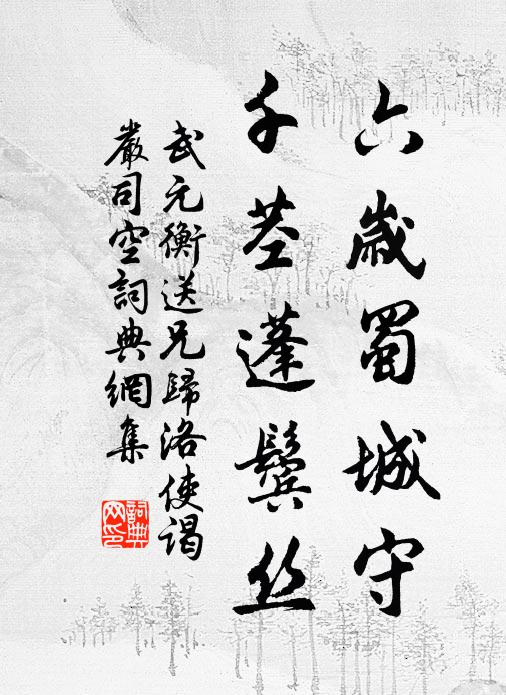 六歲蜀城守
千莖蓬鬢丝
武元衡送兄歸洛使謁
嚴司空詞典網集
詞典
网印